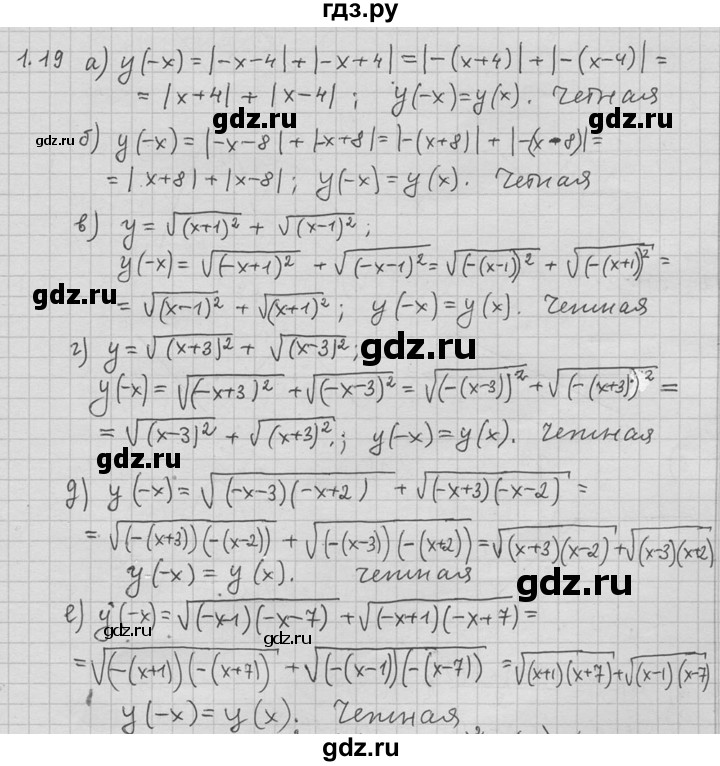 гдз.ру
1.19 а) y(-x) = |-x-4| + |-x+4| = |-(x+4)| + |-(x-4)| =
= |x+4| + |x-4| ; y(-x) = y(x). Четная
gdz.ru
gdz.ru б) y(-x) = |-x-8| + |-x+8| = |-(x+8)| + |-(x-8)| =
= |x+8| + |x-8| ; y(-x) = y(x). Четная
в) y = √(x+1)² + √(x-1)² ;
y(-x) = √(-x+1)² + √(-x-1)² = √(-(x-1))² + √(-(x+1))² =
gdz.ru = √(x-1)² + √(x+1)² ; y(-x) = y(x). Четная
г) y = √(x+3)² + √(x-3)² ; gdz.ru
y(-x) = √(-x+3)² + √(-x-3)² = √(-(x-3))² + √(-(x+3))² =
= √(x-3)² + √(x+3)² ; y(-x) = y(x). Четная
gdz.ru
д) y(-x) = √(-x-3)(-x+2) + √(-x+3)(-x-2) =
= √(-(x+3))(-(x-2)) + √(-(x-3))(-(x+2)) = √(x+3)(x-2) + √(x-3)(x+2)
y(-x) = y(x). четная gdz.ru
е) y(-x) = √(-x-1)(-x-7) + √(-x+1)(-x+7) =
gdz.ru gdz.ru
= √(-(x+1))(-(x+7)) + √(-(x-1))(-(x-7)) = √(x+1)(x+7) + √(x-1)(x-7)
y(-x) = y(x). Четная
gdz.ru